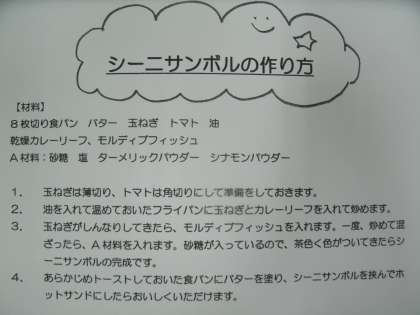 シーニサンボルの作り方
【材料】
8枚切り食パン　バター　玉ねぎ　トマト　油
乾燥カレーリーフ、モルディブフィッシュ
A材料：砂糖　塩　ターメリックパウダー　シナモンパウダー
1．　玉ねぎは薄切り、トマトは角切りにして準備をしておきます。
2．　油を入れて温めておいたフライパンに玉ねぎとカレーリーフを入れて炒めます。
3．　玉ねぎがしんなりしてきたら、モルディブフィッシュを入れます。一度、炒めて混
ざったら、A材料を入れます。砂糖が入っているので、茶色く色がついてきたらシ
ーニサンボルの完成です。
4．　あらかじめトーストしておいた食パンにバターを塗り、シーニサンボルを挟んでホ
ットサンドにしたらおいしくいただけます。